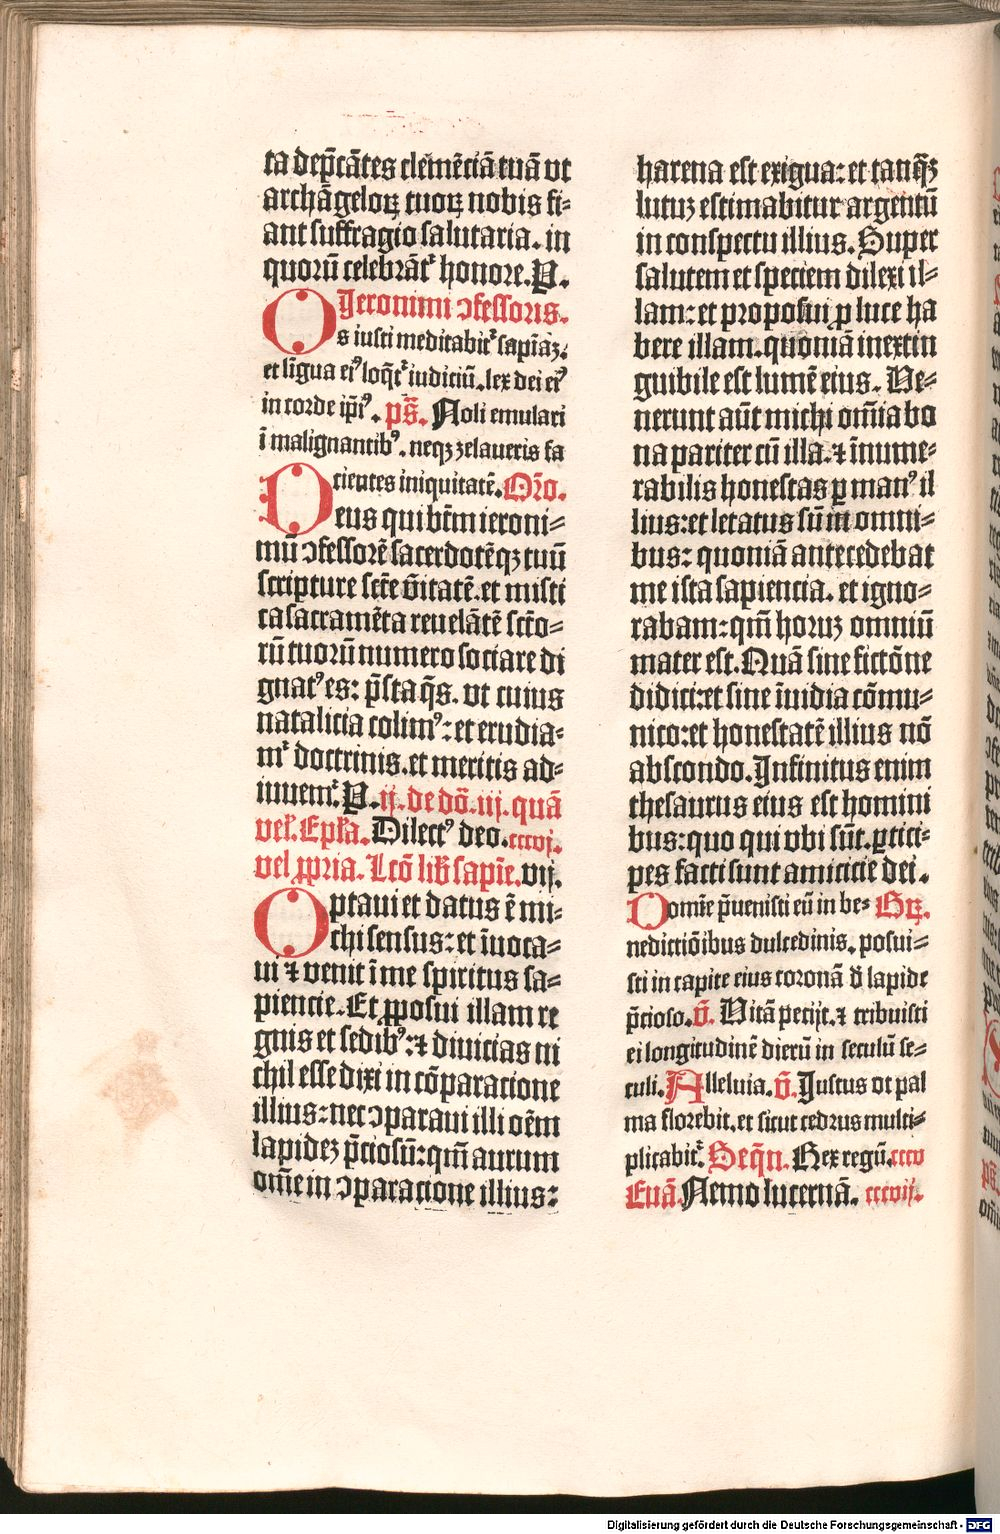 ta dep̄cātes clemēciā tuā vt
archāgeloꝝ tuoꝝ nobis fi⸗
ant suffragio salutaria. in
quorū celebrāt᷑ honore. P.
Jeronimi ↄfessoris.
Os iusti meditabit᷑ sapīaꝫ.
et līgua eiꝰ loq̄t᷑ iudiciū. lex dei eiꝰ
in corde ip̄iꝰ. ps̄. Noli emulari
ī malignantibꝰ. neqꝫ zelaueris fa
cientes iniquitatē. Or̄o.
Deus qui bt̄m ieroni⸗
mū ↄfessorē sacerdotēqꝫ tuū
scripture sct̄e v̄itatē. et misti
ca sacramēta reuelātē scto⸗
rū tuorū numero sociare di
gnatꝰ es: p̄sta q̄s. vt cuius
natalicia colimꝰ: et erudia⸗
m᷑ doctrinis. et meritis ad⸗
iuuem᷑. P. ij. de dō. iij. quā
vel. Epl̄a. Dilectꝰ deo. cccvj.
vel ꝓpria. Lc̄o lib̄ sapīe. vij.
Optaui et datus ē mi⸗
chi sensus: et īuoca⸗
ui ⁊ venit ī me spiritus sa⸗
piencie. Et ꝓposui illam re
gnis et sedibꝰ: ⁊ diuicias ni
chil esse dixi in cōparacione
illius: nec ↄparaui illi oēm
lapideꝫ p̄ciosū: qm̄ aurum
om̄e in ↄparacione illius:
harena est exigua: et tanq̄ꝫ
lutuꝫ estimabitur argentū
in conspectu illius. Super
salutem et speciem dilexi il⸗
lam: et proposui ꝓ luce ha
bere illam. quoniā inextin
guibile est lumē eius. Ve⸗
nerunt aūt michi om̄ia bo
na pariter cū illa. ⁊ īnume⸗
rabilis honestas ꝑ manꝰ il
lius: et letatus sū in omni⸗
bus: quoniā antecedebat
me ista sapiencia. et igno⸗
rabam: qm̄ horuꝫ omniū
mater est. Quā sine fictōne
didici: et sine īuidia cōmu⸗
nico: et honestatē illius nō
abscondo. Infinitus enim
thesaurus eius est homini
bus: quo qui vbi sūt. ꝑtici⸗
pes facti sunt amicicie dei.
Domīe p̄uenisti eū in be⸗ Gꝝ.
nedictiōibus dulcedinis. posui⸗
sti in capite eius coronā d̄ lapide
p̄cioso. v̄. Vitā pecijt. ⁊ tribuisti
ei longitudinē dierū in seculū se⸗
culi. Alleluia. v̄. Justus vt pal
ma florebit. et sicut cedrus multi⸗
plicabit᷑. Seqn̄. Rex regū. cccv
Euā. Nemo lucernā. cccvij.
Digitalisierung gefördert durch die Deutsche Forschungsgemeinschaft - DFG